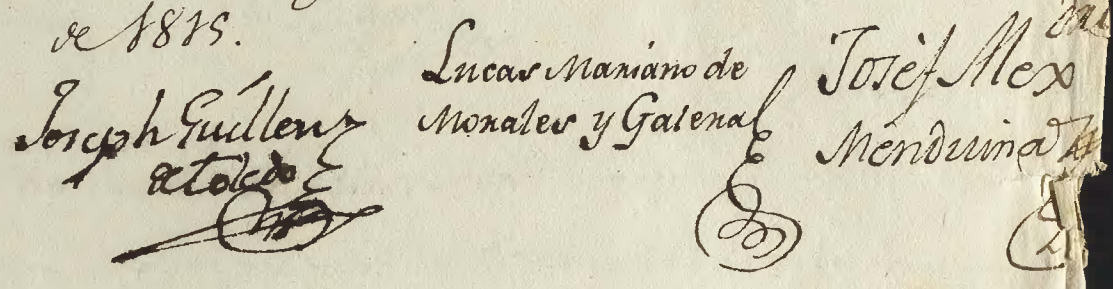 de 1815.
Joseph Guillen
de Toledo
Lucas Mariano de
Morales y Galena
Josef Alex
Menduina